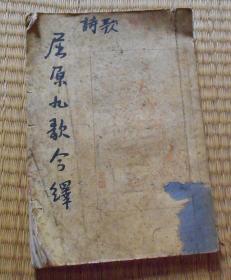 詩歌
屈原九歌今繹